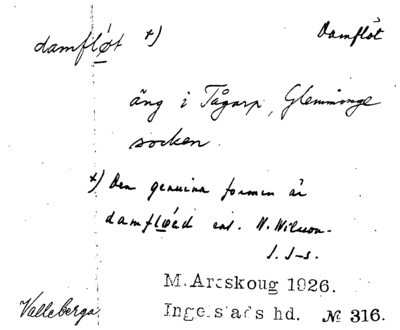 damfløt x) Damflöt
äng i Tågarp, Glemminge
socken.
x) Den genuina formen är
damfløed enl. N. Nilsson.
J. J-s.
M. Areskoug 1926.
Valleberga. Ingelstads hd. № 316.